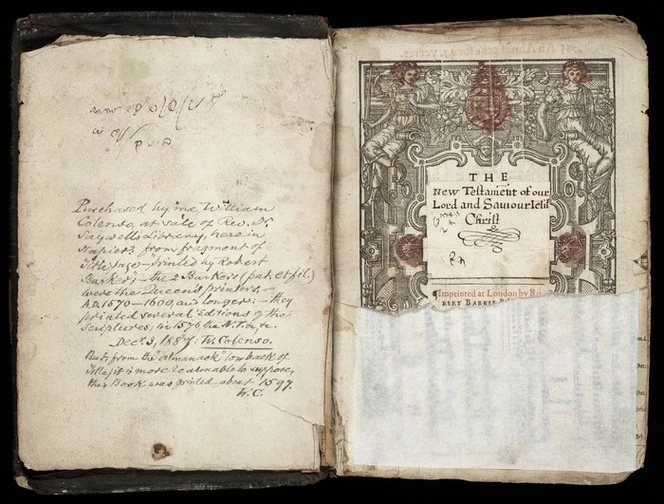 Purchased by me, William
Colenso, at sale of Rev. Dr.
Saywell's library, here in
Napier: from fragment of
Title-page - printed by Robert
Barker; - the 2 Barkers (pat. et fil.)
were the Queen's printers, -
A.D. 1570-1600, and longer: - they
printed several Editions of the
Scriptures; in 1576 the N.T. &c.
Dec. 3, 1887: W. Colenso.
But, from the almanack on back of
Title, it is more reasonable to suppose,
this Book was printed about 1597.
W.C.
THE
New Testament of our
Lord and Sauiour Iesus
Christ
Imprinted at London by Ro-
BERT BARKER